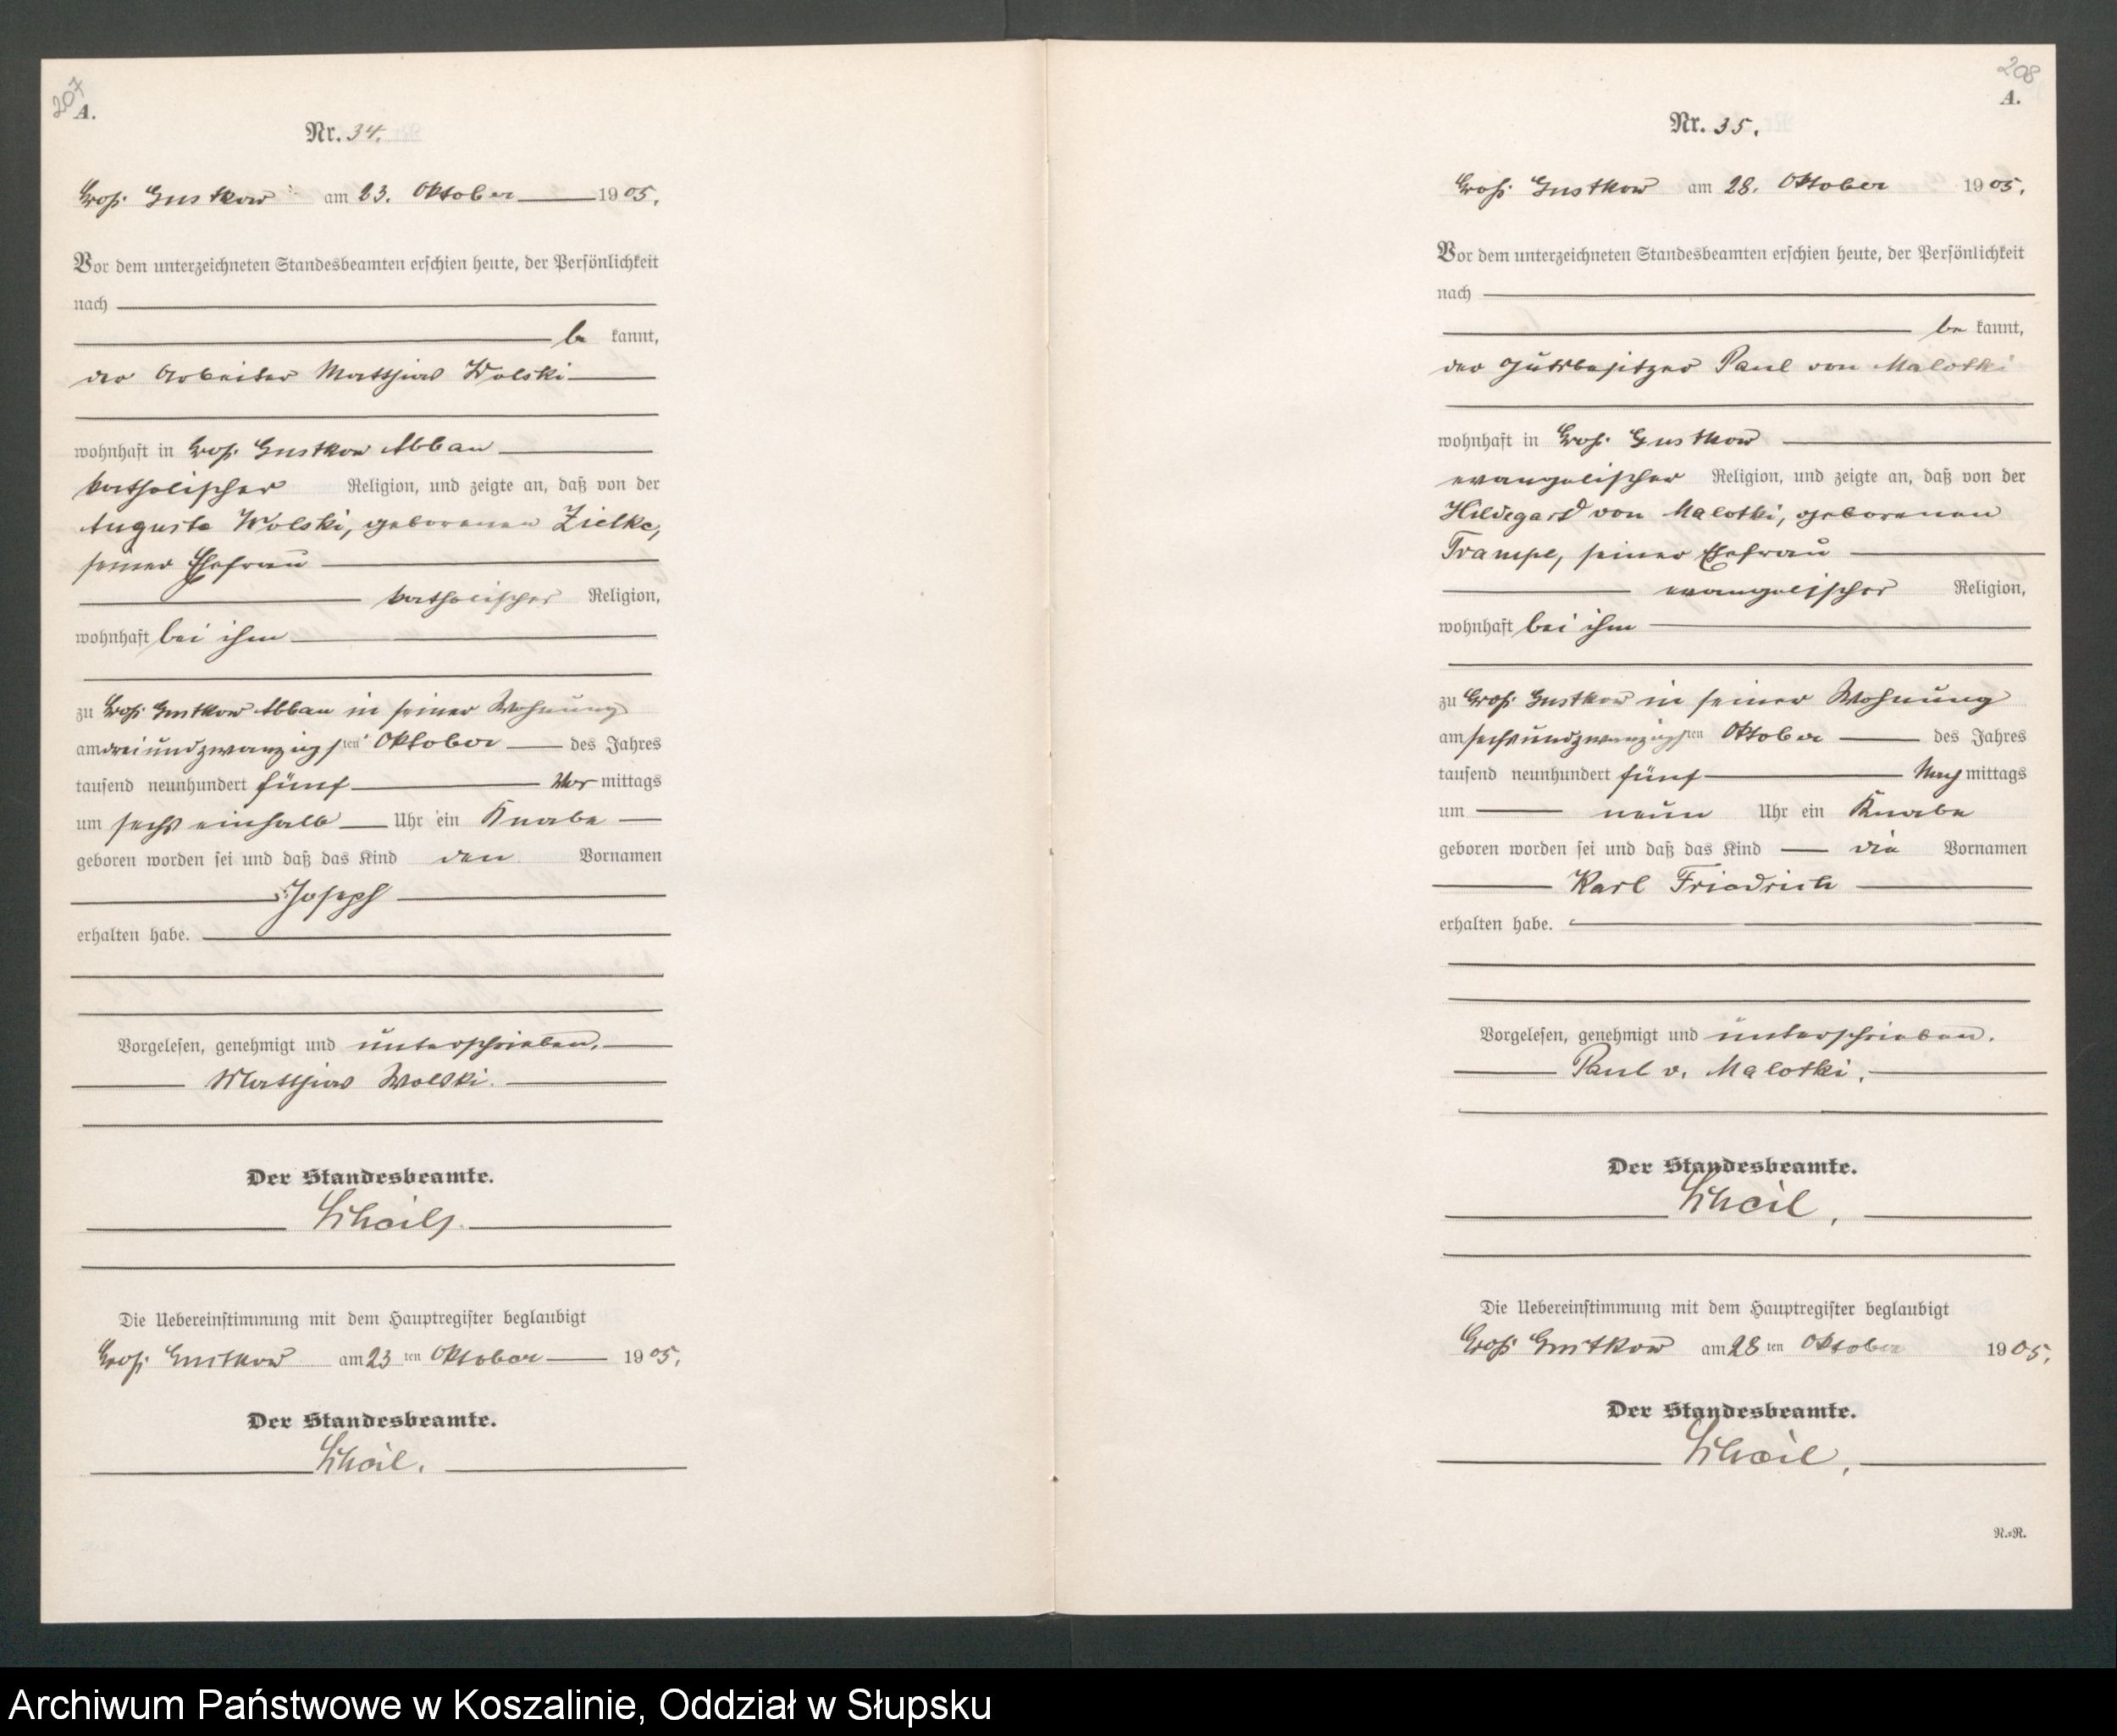 207
A.
Nr. 34.
Groß Gustkow am 23. Oktober 1905.
Vor dem unterzeichneten Standesbeamten erschien heute, der Persönlichkeit
nach
be kannt,
der Arbeiter Matthias Wolski
wohnhaft in Groß Gustkow Abbau
katholischer Religion, und zeigte an, daß von der
Auguste Wolski, geborenen Zielke,
seiner Ehefrau
katholischer Religion,
wohnhaft bei ihm
zu Groß Gustkow Abbau in seiner Wohnung
am dreiundzwanzigsten Oktober des Jahres
tausend neunhundert fünf Vor mittags
um sechs einhalb Uhr ein Knabe
geboren worden sei und daß das Kind den Vornamen
Joseph
erhalten habe.
Vorgelesen, genehmigt und unterschrieben.
Matthias Wolski.
Der Standesbeamte.
Die Uebereinstimmung mit dem Hauptregister beglaubigt
Groß Gustkow am 23 ten Oktober 1905.
Der Standesbeamte.
208
A.
Nr. 35.
Groß Gustkow am 28. Oktober 1905.
Vor dem unterzeichneten Standesbeamten erschien heute, der Persönlichkeit
nach
be kannt,
der Gutsbesitzer Paul von Malotki
wohnhaft in Groß Gustkow
evangelischer Religion, und zeigte an, daß von der
Hildegard von Malotki, geborenen
Trampe, seiner Ehefrau
evangelischer Religion,
wohnhaft bei ihm
zu Groß Gustkow in seiner Wohnung
am sechsundzwanzigsten Oktober des Jahres
tausend neunhundert fünf Nach mittags
um neun Uhr ein Knabe
geboren worden sei und daß das Kind die Vornamen
Karl Friedrich
erhalten habe.
Vorgelesen, genehmigt und unterschrieben.
Paul v. Malotki.
Der Standesbeamte.
Die Uebereinstimmung mit dem Hauptregister beglaubigt
Groß Gustkow am 28 ten Oktober 1905.
Der Standesbeamte.
N.=R.
Archiwum Państwowe w Koszalinie, Oddział w Słupsku